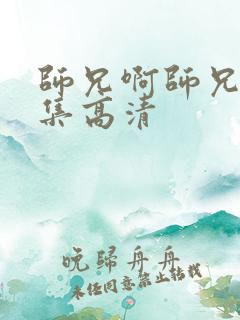 師兄啊師兄
集高清
晚歸舟舟
未经同意禁止转载